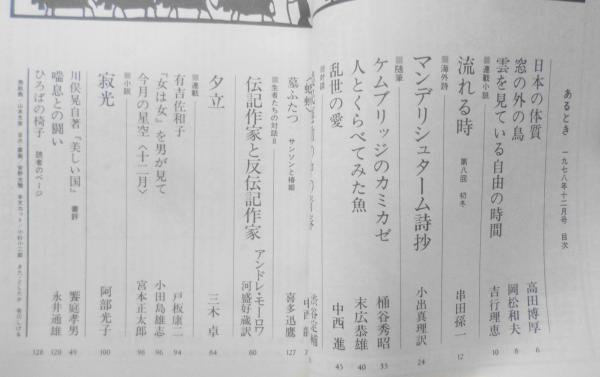 あるとき 一九七八年十二月号 目次
日本の体質 高田博厚 6
窓の外の鳥 岡松和夫 8
雲を見ている自由の時間 吉行理恵 10
■連載小説
流れる時 第八回 初冬 串田孫一 12
■海外詩
マンデリシュターム詩抄 小出真理訳 24
■随筆
ケムブリッジのカミカゼ 桶谷秀昭 35
人とくらべてみた魚 末広恭雄 40
乱世の愛 中西進 45
■対談
渋谷定輔
墓ふたつ サンソンと椿姫 喜多迅鷹 127
■生者たちの対話8
伝記作家と反伝記作家 アンドレ・モーロワ 河盛好蔵訳 60
夕立 三木卓 84
■連載
有吉佐和子 戸板康二 94
「女は女」を男が見て 小田島雄志 96
今月の星空〈十二月〉 宮本正太郎 98
■小説
寂光 阿部光子 100
川俣晃自著『美しい国』 書評 饗庭孝男 49
喘息との闘い 永井通雄 120
ひろばの椅子 読者のページ 128